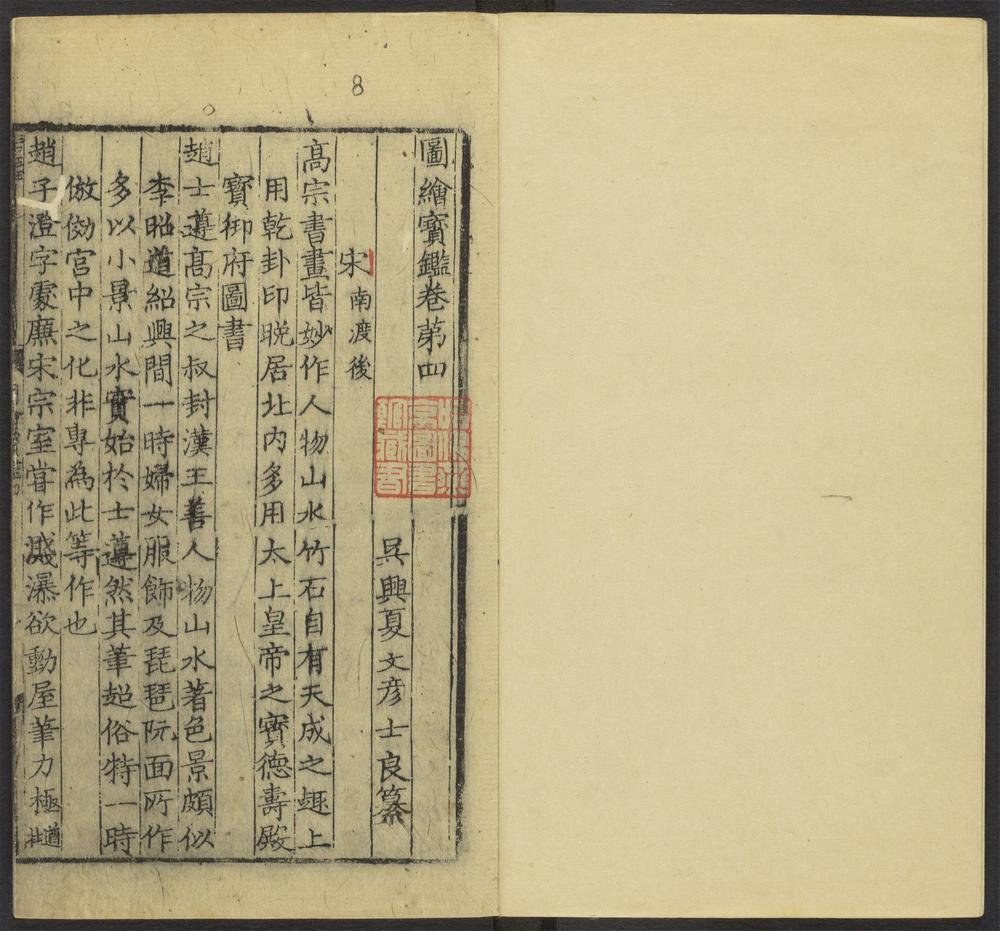 8
圖繪寳鑑卷第四
吳興夏文彦士良纂
宋南渡後
髙宗書畫皆妙作人物山水竹石自有天成之趣上
用乾卦印晚居北内多用太上皇帝之寳德壽殿
寳御府圖書
趙士遵髙宗之叔封漢王善人物山水著色景頗似
李昭道紹興間一時婦女服飾及琵琶阮面所作
多以小景山水實始於士遵然其筆超俗特一時
倣効宫中之化非專為此等作也
趙子澄字處廉宋宗室嘗作濺瀑欲動屋筆力極遒壯